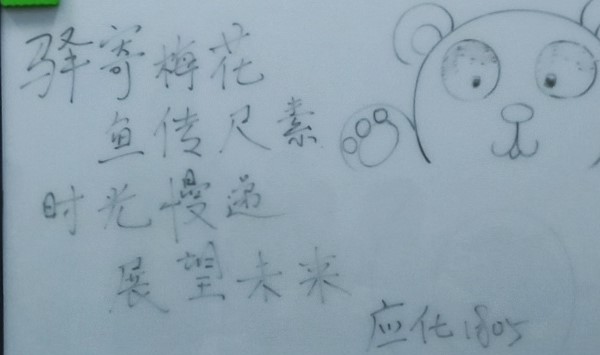 驿寄梅花
鱼传尺素
时光慢递
展望未来
应化1805